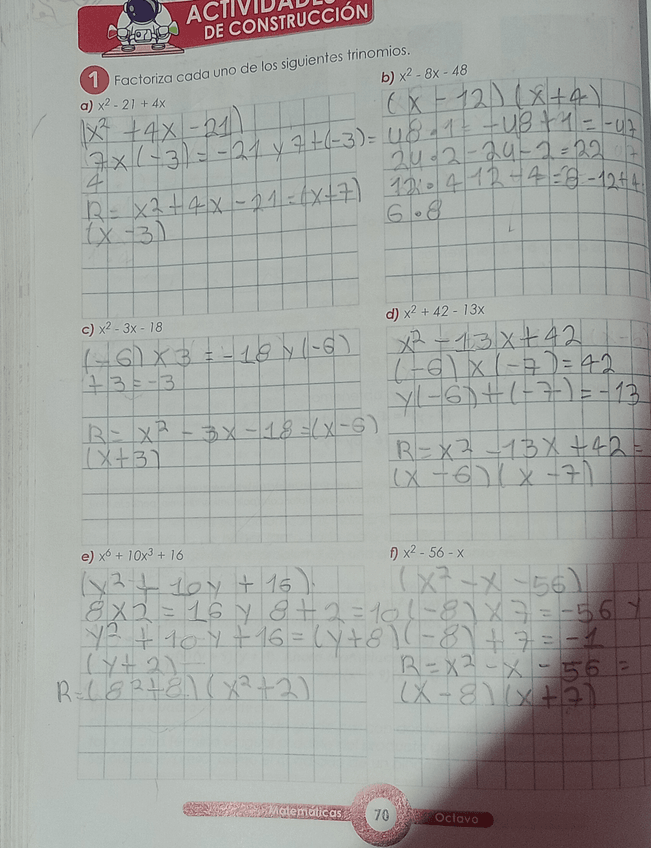 ACTIVIDADES
DE CONSTRUCCIÓN
1 Factoriza cada uno de los siguientes trinomios.
a) x² - 21 + 4x
(x² + 4x - 21)
7x(-3) = -21 y 7+(-3)=
4
R= x2+4x-21=(x+7)
(x-3)
b) x² - 8x - 48
(x-12)(x+4)
48·1= -48+1=-47
24·2-24-2=22
12·4 12-4=8-12+4
6·8
c) x² - 3x - 18
(-6)x3=-18 y(-6)
+3=-3
R= x² - 3x - 18=(x-6)
(x+3)
d) x² + 42 - 13x
x² - 13x + 42
(-6)x(-7)=42
y(-6)+(-7)=-13
R=x2 -13x+42=
(x-6)(x-7)
e) x⁶ + 10x³ + 16
(y²+10y+16)
8x2=16 y 8+2=10
y²+10y+16=(y+8)
(y+2)
R=(8²+8)(x²+2)
f) x² - 56 - x
(x²-x-56)
(-8)x7=-56 y
(-8)+7=-1
R=x²-x-56=
(x-8)(x+7)
Matemáticas 70 Octavo